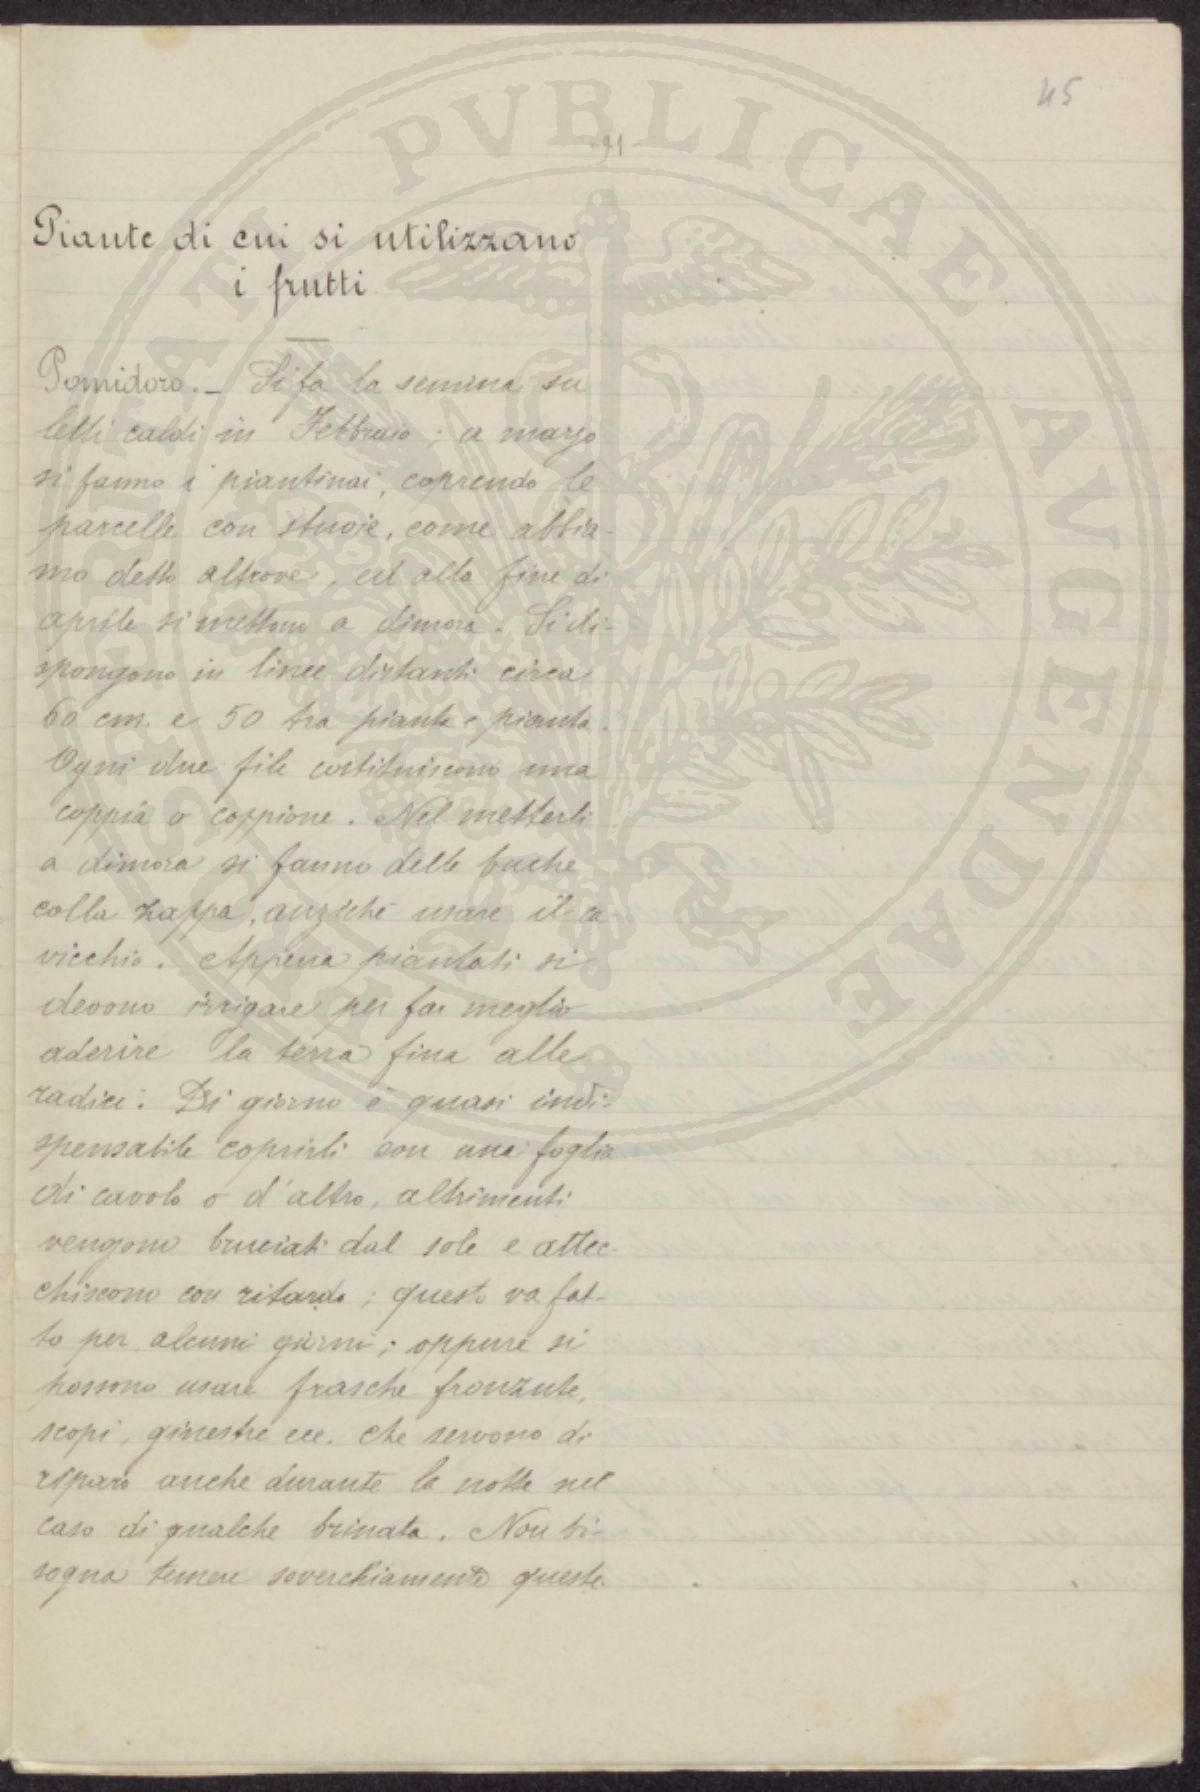 45
- 91 -
Piante di cui si utilizzano
i frutti
Pomidoro. - Si fa la semina su
letti caldi in Febbraio; a marzo
si fanno i piantinai, coprendo le
parcelle con stuoie, come abbia-
mo detto altrove, ed alla fine di
aprile si mettono a dimora. Si di-
spongono in linee distanti circa
60 cm. e 50 tra pianta e pianta.
Ogni due file costituiscono una
coppia o coppione. Nel metterli
a dimora si fanno delle buche
colla zappa, anzichè usare il ca-
vicchio. Appena piantati si
devono irrigare per far meglio
aderire la terra fina alle
radici. Di giorno è quasi indi-
spensabile coprirli con una foglia
di cavolo o d'altro, altrimenti
vengono bruciati dal sole e attec-
chiscono con ritardo; questo va fat-
to per alcuni giorni; oppure si
possono usare frasche fronzute,
scopi, ginestre ecc. che servono di
riparo anche durante la notte nel
caso di qualche brinata. Non bi-
sogna temere soverchiamente queste
PVBLICAE AVGENDAE